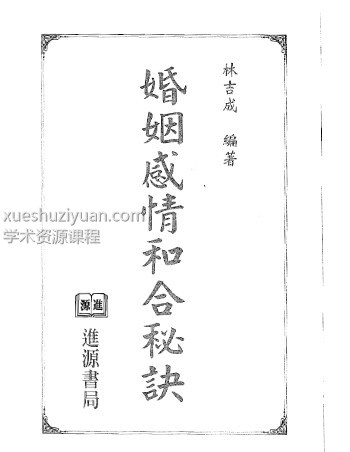 林吉成 編著
婚姻感情和合秘訣
進源
進源書局
xueshuziyuan.com
学术资源课程